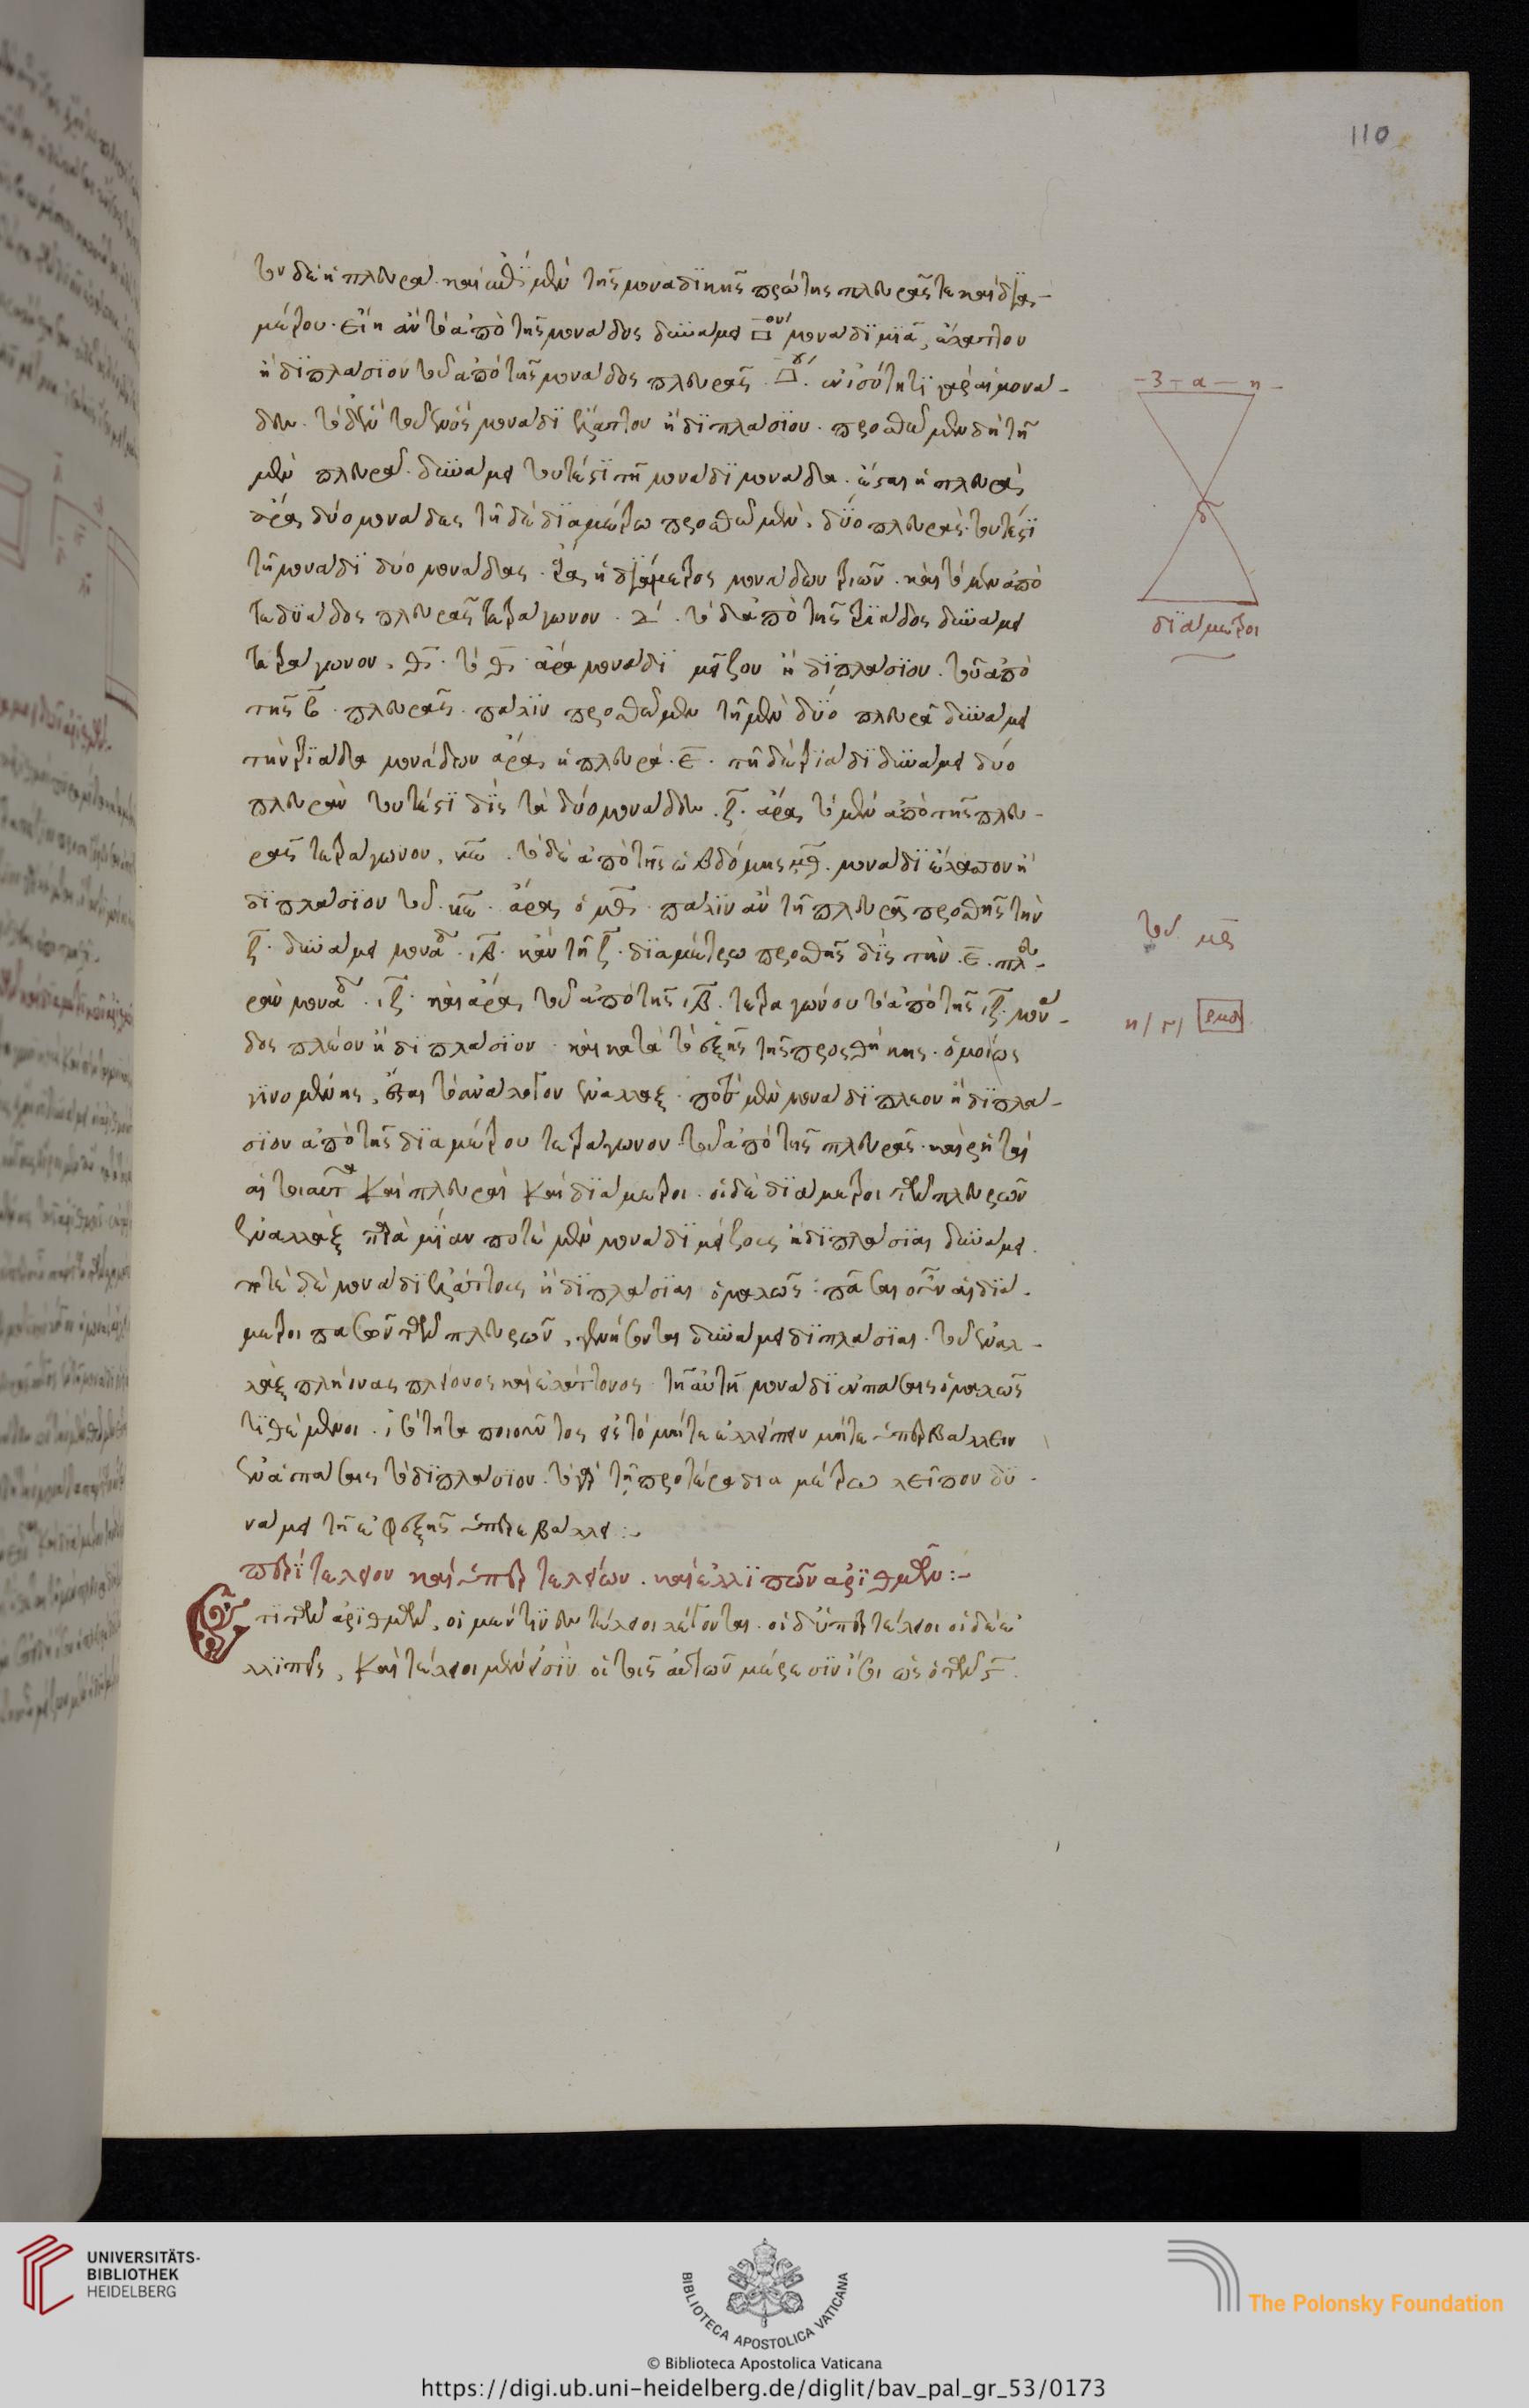 110
του δὲ ἡ πλευρά. καὶ αὐξήσωμεν τῆς μοναδικῆς πρώτης πλευρᾶς τε καὶ δια-
μέτρου. εἴη ἂν τὸ ἀπὸ τῆς μονάδος δυνάμει □ον μονάδι μιᾷ, ἔλαττον
ἢ διπλάσιον τοῦ ἀπὸ τῆς μονάδος πλευρᾶς □. ἐν ἰσότητι γὰρ αἱ μονά-
δες. τὸ δ' ἓν τοῦ ἑνὸς μονάδι ἔλαττον ἢ διπλάσιον. προσθῶμεν δὴ τῇ
μὲν πλευρᾷ δυνάμει τουτέστι τῇ μονάδι μονάδα. ἔσται ἡ πλευρὰ
ἄρα δύο μονάδες τῇ δὲ διαμέτρῳ προσθῶμεν. δύο πλευράς. τουτέστι
τῇ μονάδι δύο μονάδας. ἔσται ἡ διάμετρος μονάδων τριῶν. καὶ τὸ μὲν ἀπὸ
τῆς δυάδος πλευρᾶς τετράγωνον. δ'. τὸ δ' ἀπὸ τῆς τριάδος δυνάμει
τετράγωνον. θ. τὸ θ ἄρα μονάδι μεῖζον ἢ διπλάσιον. τοῦ ἀπὸ
τῆς β. πλευρᾶς. πάλιν προσθῶμεν τῇ μὲν δύο πλευρᾷ δυνάμει
τὴν τριάδα μονάδων ἄρα ἡ πλευρά. ε. τῇ δὲ τριάδι δυνάμει δύο
πλευρὰν τουτέστι δὶς τὰ δύο μονάδες. ζ. ἄρα τὸ μὲν ἀπὸ τῆς πλευ-
ρᾶς τετράγωνον, κε. τὸ δὲ ἀπὸ τῆς ἑβδόμης μθ. μονάδι ἔλαττον ἢ
διπλάσιον τοῦ. κε. ἄρα ὁ μθ. πάλιν ἂν τῇ πλευρᾷ προσθῇς τὴν
ζ. δυνάμει μονάδ. ιβ. κἂν τῇ ζ. διαμέτρῳ προσθῇς δὶς τὴν. ε. πλευ-
ρὰν μονάδ. ιζ. καὶ ἄρα τοῦ ἀπὸ τῆς ιβ. τετραγώνου τὸ ἀπὸ τῆς ιζ. μονά-
δος πλέον ἢ διπλάσιον. καὶ κατὰ τὸ ἑξῆς τῆς προσθήκης. ὁμοίως
γινομένης, ἔσται τὸ ἀνάλογον ἐναλλάξ. ποτὲ μὲν μονάδι πλέον ἢ διπλά-
σιον ἀπὸ τῆς διαμέτρου τετράγωνον. τοῦ ἀπὸ τῆς πλευρᾶς. καὶ ῥηταὶ
αἱ τοιαῦτα καὶ πλευραὶ καὶ διάμετροι. οἱ δὲ διάμετροι τῶν πλευρῶν
ἐναλλὰξ παρὰ μίαν ποτὲ μὲν μονάδι μείζους ἢ διπλάσιαι δυνάμει.
ποτὲ δὲ μονάδι ἐλάττους ἢ διπλάσιαι ὁμαλῶς. πᾶσαι οὖν αἱ διά-
μετροι πασῶν τῶν πλευρῶν, γενήσονται δυνάμει διπλάσιαι. τοῦ ἐναλ-
λὰξ πλήονας πλείονος καὶ ἐλάττονος τῇ αὐτῇ μονάδι ἐν πάσαις ὁμαλῶς
τιθέμενοι. ἰσότητα ποιοῦντος εἰς τὸ μήτε ἐλλείπειν μήτε ὑπερβάλλειν
ἐν ἁπάσαις τὸ διπλάσιον. τὸ γὰρ τῇ προτέρᾳ διαμέτρῳ λεῖπον δυ-
νάμει τῇ ἐφεξῆς ὑπερβάλλει :
περὶ τελείου καὶ ὑπερτελείων. καὶ ἐλλιπῶν ἀριθμῶν:-
Ἔτι τῶν ἀριθμῶν, οἱ μέν τινες τέλειοι λέγονται. οἱ δ' ὑπερτέλειοι οἱ δὲ ἐ
λλιπεῖς, καὶ τέλειοι μέν εἰσιν οἱ τοῖς αὐτῶν μέρεσιν ἴσοι ὡς ὁ τῶν ϛ.
-3-α-η-
δ
διάμετροι
τοῦ με
η / γ / ρμδ
UNIVERSITÄTS-
BIBLIOTHEK
HEIDELBERG
BIBLIOTECA APOSTOLICA VATICANA
The Polonsky Foundation
© Biblioteca Apostolica Vaticana
https://digi.ub.uni-heidelberg.de/diglit/bav_pal_gr_53/0173